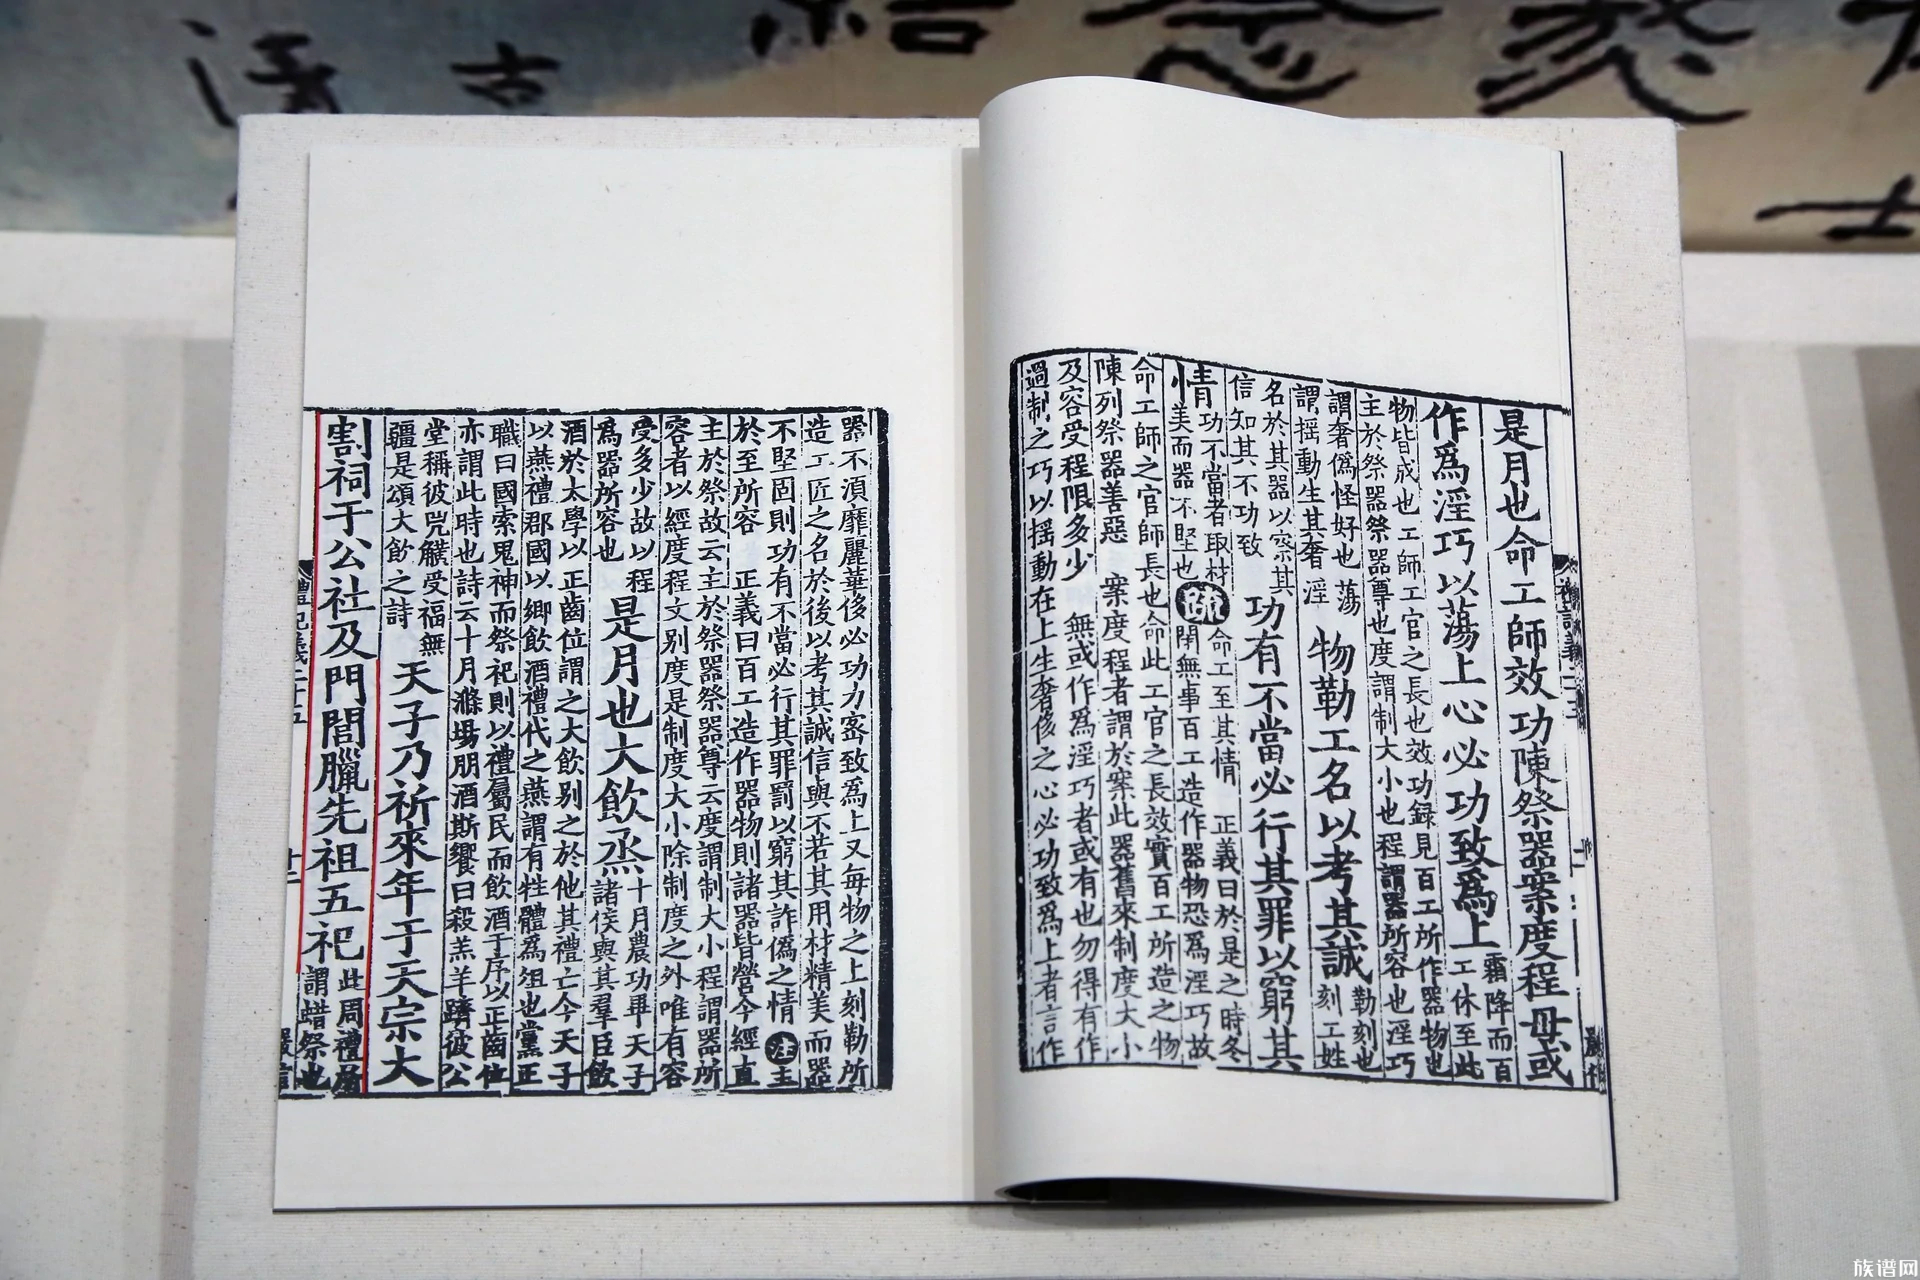 是月也命工師效功陳祭器案度程毋或
作爲淫巧以蕩上心必功致爲上霜降而百
工休至此
物皆成也工師工官之長也效功録見百工所作器物也
主於祭器祭器尊也度謂制大小也程謂器所容也淫巧
謂奢僞怪好也蕩
謂揺動生其奢淫
物勒工名以考其誠
勒刻也
刻工姓
名於其器以察其
信知其不功致
功有不當必行其罪以窮其
情
功不當者取材
美而器不堅也
疏
命工至其情 正義曰於是之時冬
閉無事百工造作器物恐爲淫巧故
命工師之官師長也命此工官之長效實百工所造之物
陳列祭器善惡 案度程者謂於案此器舊來制度大小
及容受程限多少 無或作爲淫巧者或有也勿得有作
過制之巧以揺動在上生奢侈之心必功致爲上者言作
器不須靡麗華侈必功力密致爲上又每物之上刻勒所
造工匠之名於後以考其誠信與不若其用材精美而器
不堅固則功有不當必行其罪罰以窮其詐僞之情 注主
於至所容 正義曰百工造作器物則諸器皆營今經直
主於祭故云主於祭器祭器尊云度謂制大小程謂器所
容者以經度程文別度是制度大小除制度之外唯有容
受多少故以程
爲器所容也
是月也大飲烝
十月農功畢天子
諸侯與其羣臣飲
酒於太學以正齒位謂之大飲別之於他其禮亡今天子
以燕禮郡國以鄉飲酒禮代之燕謂有牲體爲俎也黨正
職曰國索鬼神而祭祀則以禮屬民而飲酒于序以正齒位
亦謂此時也詩云十月滌場朋酒斯饗曰殺羔羊躋彼公
堂稱彼兕觥受福無
疆是頌大飲之詩
天子乃祈來年于天宗大
割祠于公社及門閭臘先祖五祀
此周禮所
謂蜡祭也
禮記義二十五
十二
族谱网